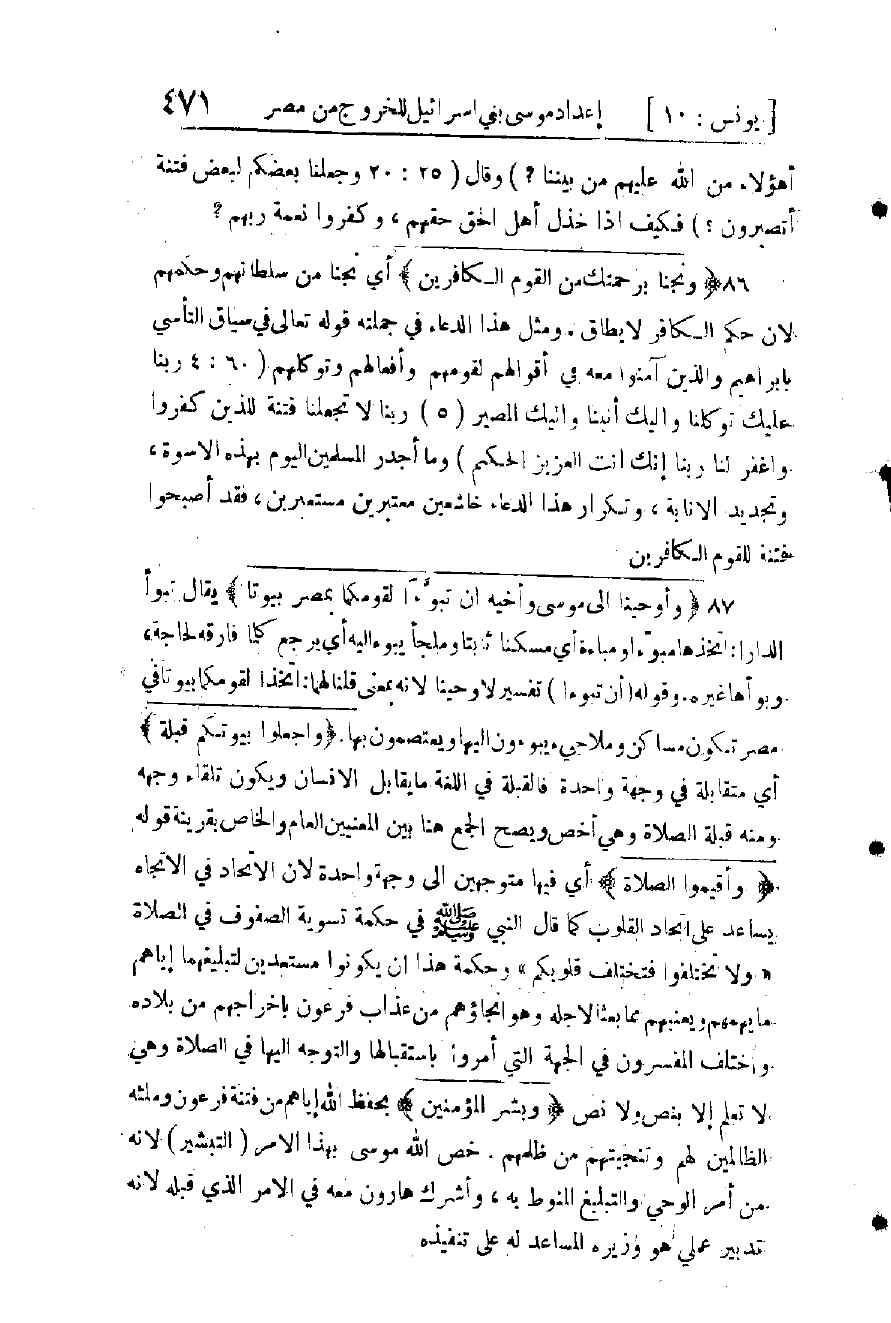 [ يونس : ١٠ ] إعداد موسى بني اسرائيل للخروج من مصر ٤٧١
أهؤلاء من الله عليهم من بيننا ؟ ) وقال ( ٢٥ : ٢٠ وجعلنا بعضكم لبعض فتنة
أتصبرون ؟ ) فكيف اذا خذل أهل الحق حقهم ، وكفروا نعمة ربهم ؟
٨٦ ﴿ ونجنا برحمتك من القوم الكافرين ﴾ أي نجنا من سلطانهم وحكمهم
لان حكم الكافر لا يطاق . ومثل هذا الدعاء في جملته قوله تعالى في سياق التأسي
بابراهيم والذين آمنوا معه في أقوالهم لقومهم وأفعالهم وتوكلهم ( ٦٠ : ٤ ربنا
عليك توكلنا واليك أنبنا واليك المصير ( ٥ ) ربنا لا تجعلنا فتنة للذين كفروا
واغفر لنا ربنا إنك انت العزيز الحكيم ) وما أجدر المسلمين اليوم بهذه الاسوة ،
وتجديد الانابة ، وتكرار هذا الدعاء خاشعين معتبرين مستعبرين ، فقد أصبحوا
فتنة للقوم الكافرين
٨٧ ﴿ وأوحينا الى موسى وأخيه ان تبوّءَا لقومكما بمصر بيوتا ﴾ يقال تبوأ
الدار : اتخذها مبوّءا ومباءة أي مسكنا ثابتا وملجأ يبوء اليه أي يرجع كلما فارقه لحاجة ،
وبوأها غيره . وقوله ( أن تبوءا ) تفسير لاوحينا لانه بمعنى قلنا لهما : اتخذا لقومكما بيوتا في
مصر تكون مساكن وملاجيء يبوءون اليها ويعتصمون بها . ﴿ واجعلوا بيوتكم قبلة ﴾
أي متقابلة في وجهة واحدة فالقبلة في اللغة ما يقابل الانسان ويكون تلقاء وجهه
ومنه قبلة الصلاة وهي أخص ويصح الجمع هنا بين المعنيين العام والخاص بقرينة قوله
﴿ وأقيموا الصلاة ﴾ أي فيها متوجهين الى وجهة واحدة لان الاتحاد في الاتجاه
يساعد على اتحاد القلوب كما قال النبي ﷺ في حكمة تسوية الصفوف في الصلاة
« ولا تختلفوا فتختلف قلوبكم » وحكمة هذا ان يكونوا مستعدين لتبليغهما إياهم
ما يهمهم ويعنيهم مما بعثا لاجله وهو انجاؤهم من عذاب فرعون باخراجهم من بلاده
واختلف المفسرون في الجهة التي أمروا باستقبالها والتوجه اليها في الصلاة وهي
لا تعلم إلا بنص ولا نص ﴿ وبشر المؤمنين ﴾ بحفظ الله إياهم من فتنة فرعون وملئه
الظالمين لهم وتنجيتهم من ظلمهم . خص الله موسى بهذا الامر ( التبشير ) لانه
من أمر الوحي والتبليغ المنوط به ، وأشرك هارون معه في الامر الذي قبله لانه
تدبير عملي هو وزيره المساعد له على تنفيذه